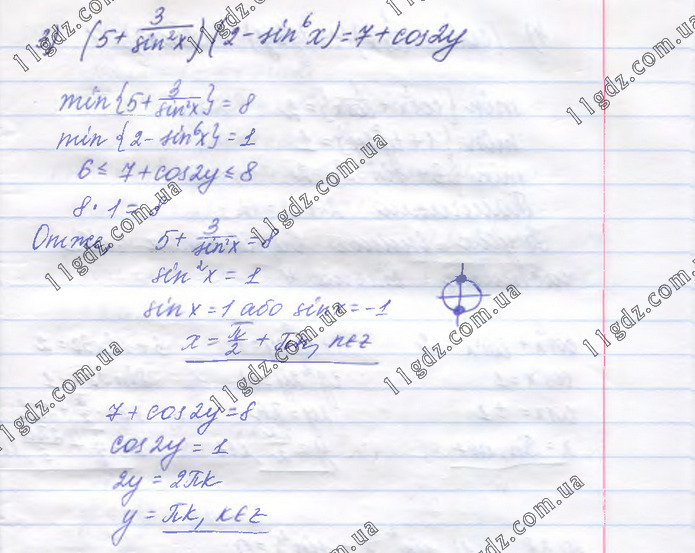 3) (5 + 3/sin²x)(2 − sin⁶x) = 7 + cos2y
min{5 + 3/sin²x} = 8
min{2 − sin⁶x} = 1
6 ≤ 7 + cos2y ≤ 8
8 · 1 = 8
Отже 5 + 3/sin²x = 8
sin²x = 1
sin x = 1 або sin x = −1
x = π/2 + πn, n∈z
7 + cos2y = 8
cos2y = 1
2y = 2πk
y = πk, k∈z
11gdz.com.ua
11gdz.com.ua
11gdz.com.ua
11gdz.com.ua
11gdz.com.ua
11gdz.com.ua
11gdz.com.ua
11gdz.com.ua
11gdz.com.ua
11gdz.com.ua
11gdz.com.ua
11gdz.com.ua